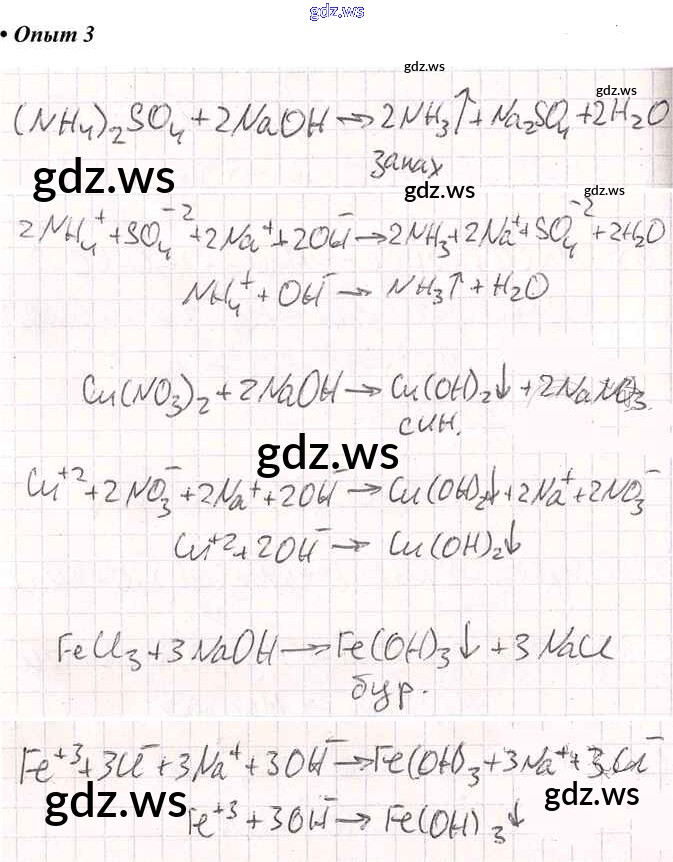 gdz.ws
• Опыт 3
gdz.ws
gdz.ws
(NH₄)₂SO₄ + 2NaOH → 2NH₃↑ + Na₂SO₄ + 2H₂O
запах
gdz.ws
gdz.ws
gdz.ws
2NH₄⁺ + SO₄⁻² + 2Na⁺ + 2OH⁻ → 2NH₃ + 2Na⁺ + SO₄⁻² + 2H₂O
NH₄⁺ + OH⁻ → NH₃↑ + H₂O
Cu(NO₃)₂ + 2NaOH → Cu(OH)₂↓ + 2NaNO₃
син.
gdz.ws
Cu⁺² + 2NO₃⁻ + 2Na⁺ + 2OH⁻ → Cu(OH)₂↓ + 2Na⁺ + 2NO₃⁻
Cu⁺² + 2OH⁻ → Cu(OH)₂↓
FeCl₃ + 3NaOH → Fe(OH)₃↓ + 3NaCl
бур.
Fe⁺³ + 3Cl⁻ + 3Na⁺ + 3OH⁻ → Fe(OH)₃ + 3Na⁺ + 3Cl⁻
gdz.ws
gdz.ws
Fe⁺³ + 3OH⁻ → Fe(OH)₃↓